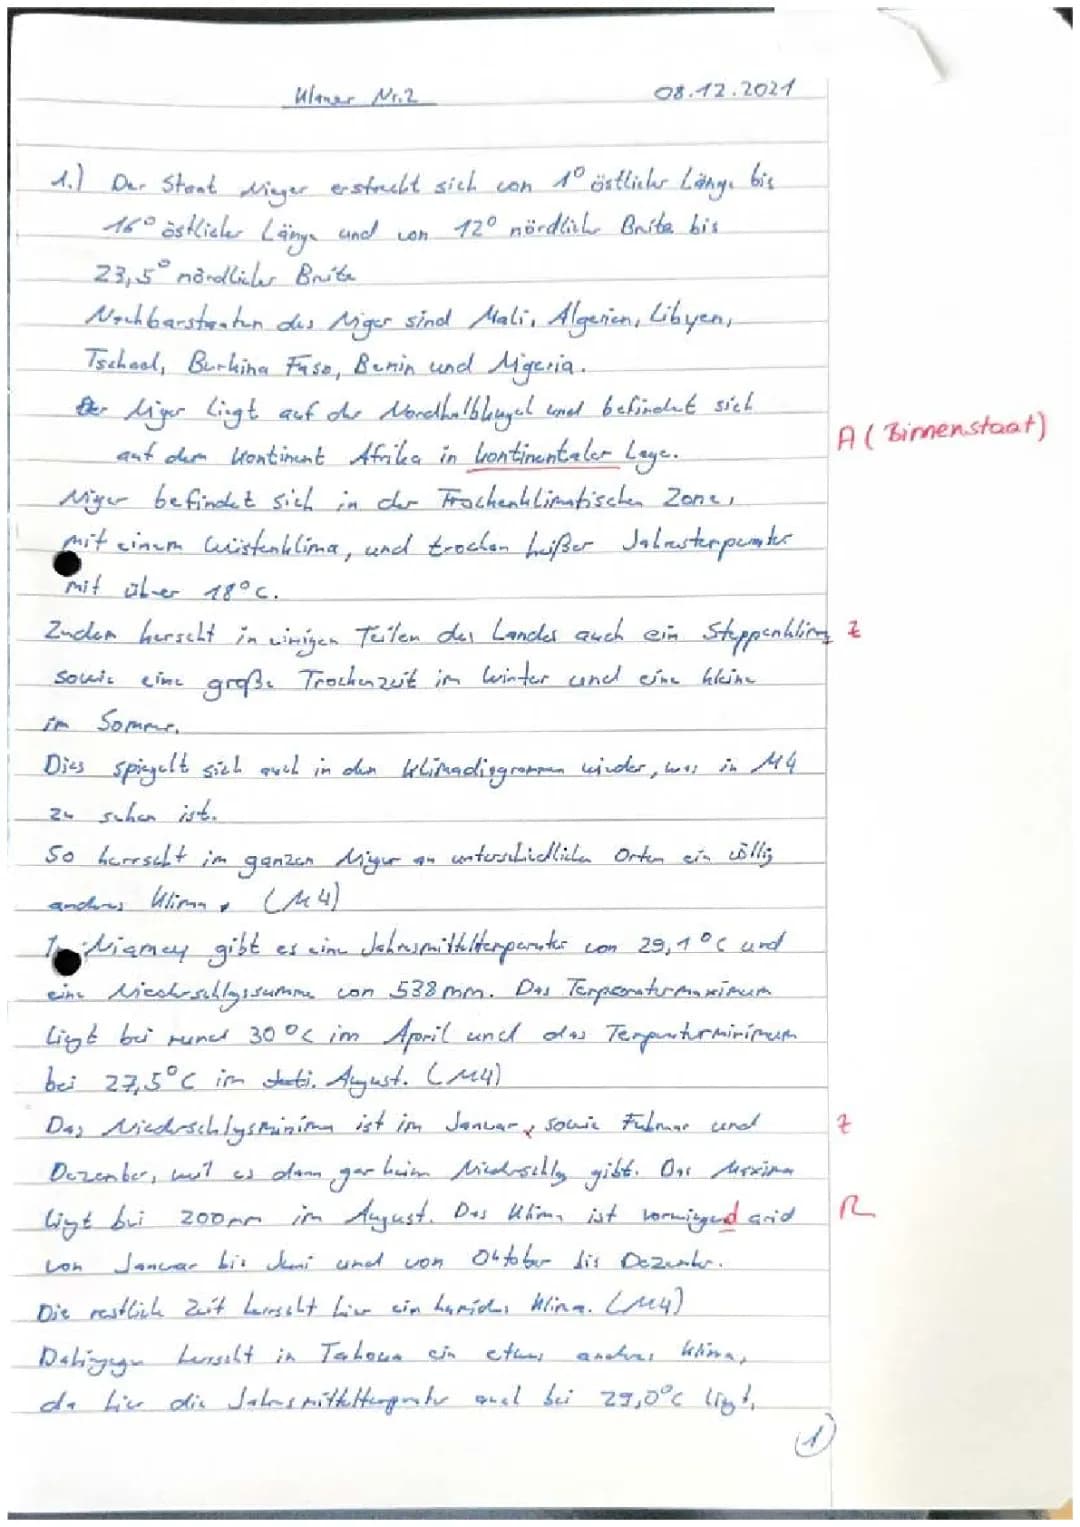 Klausur Nr.2 08.12.2021
1.) Der Staat Niger erstreckt sich von 1° östlicher Länge bis
16° östlicher Länge und von 12° nördlicher Breite bis
23,5° nördlicher Breite
Nachbarstaaten des Niger sind Mali, Algerien, Libyen,
Tschad, Burkina Faso, Benin und Nigeria.
Der Niger liegt auf der Nordhalbkugel und befindet sich
auf dem Kontinent Afrika in kontinentaler Lage.
A (Binnenstaat)
Niger befindet sich in der Trockenklimatischen Zone,
mit einem Wüstenklima, und trocken heißer Jahrestemperatur
mit über 18°C.
Zudem herscht in einigen Teilen des Landes auch ein Steppenklima Z
sowie eine große Trockenzeit im Winter und eine kleine
im Sommer.
Dies spiegelt sich auch in den Klimadiagrammen wieder, was in M4
zu sehen ist.
So herrscht im ganzen Niger an unterschiedlichen Orten ein völlig
anderes Klima, (M4)
In Niamey gibt es eine Jahresmitteltemperatur von 29,1°C und
eine Niederschlagssumme von 538 mm. Das Temperaturmaximum
liegt bei rund 30°C im April und das Temperaturminimum
bei 27,5°C im August. (M4)
Das Niederschlagsminima ist im Januar, sowie Februar und Z
Dezember, weil es dann gar keinen Niederschlag gibt. Das Maxima
liegt bei 200mm im August. Das Klima ist vorwiegend arid R
von Januar bis Juni und von Oktober bis Dezember.
Die restliche Zeit herrscht hier ein humides Klima. (M4)
Dahingegen herrscht in Tahoua ein etwas anderes Klima,
da hier die Jahresmitteltemperatur auch bei 29,0°C liegt,
1